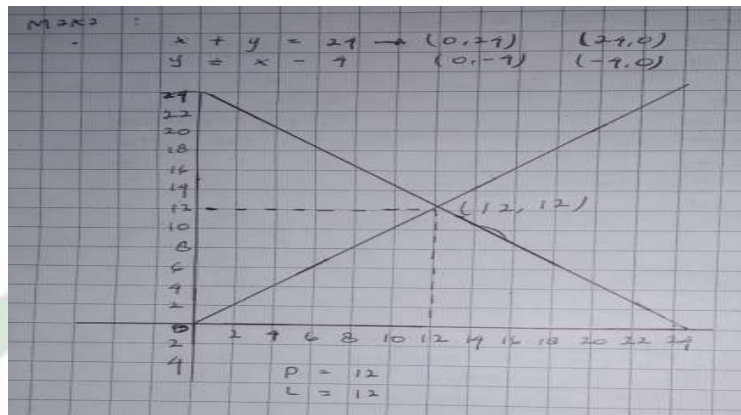 Maka :
x + y = 24 → (0,24) (24,0)
y = x - 4 (0,-4) (-4,0)
24
22
20
18
16
14
12
10
8
6
4
2
0
2
4
(12, 12)
2 4 6 8 10 12 14 16 18 20 22 24
P = 12
L = 12